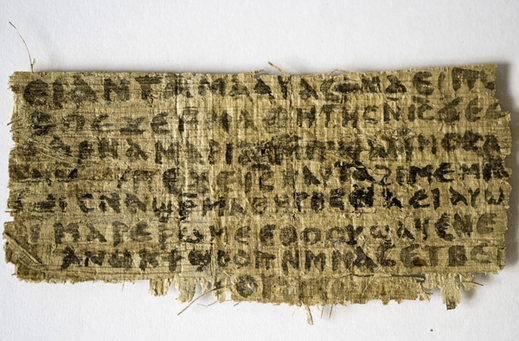 ⲉⲓ ⲁⲛ ⲧⲁⲙⲁⲁⲩ ⲁⲥϯ ⲛⲁⲉⲓ ⲡ
ⲡⲉϫⲉ ⲙⲙⲁⲑⲏⲧⲏⲥ ⲛⲓⲥ ϫⲉ
ⲁⲣⲛⲁ ⲙⲁⲣⲓⲁⲙ ⲙⲡϣⲁ ⲙⲙⲟⲥ
ⲡⲉϫⲉ ⲓⲥ ⲛⲁⲩ ⲧⲁϩⲓⲙⲉ ⲙⲛ
ⲥⲛⲁϣⲣⲙⲁⲑⲏⲧⲏⲥ ⲛⲁⲉⲓ ⲁⲩⲱ
ⲙⲁⲣⲉⲣⲱⲙⲉ ⲉⲑⲟⲟⲩ ϣⲁϥⲉ ⲛⲉ
ⲁⲛⲟⲕ ϯϣⲟⲟⲡ ⲛⲙⲙⲁⲥ ⲉⲧⲃⲉ